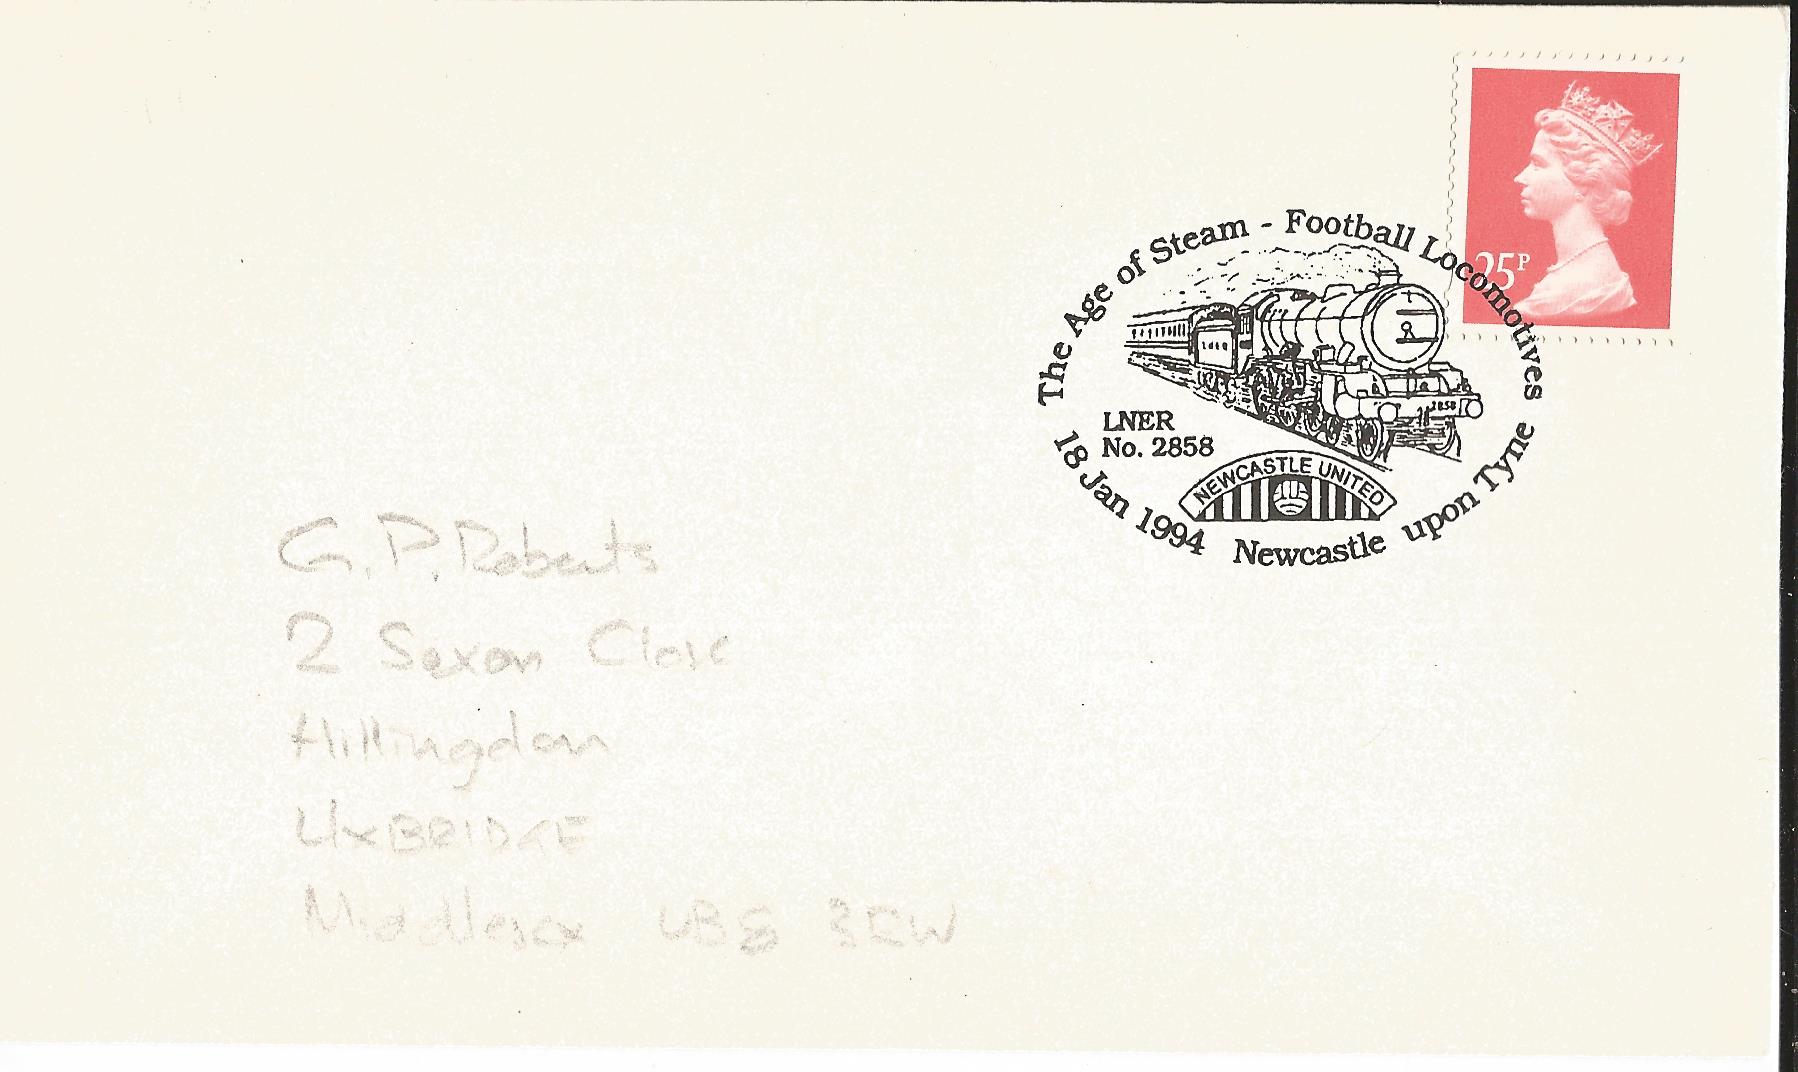 25P
The Age of Steam - Football Locomotives
2858
LNER
No. 2858
NEWCASTLE UNITED
18 Jan 1994 Newcastle upon Tyne
G. P. Roberts
2 Saxon Close
Hillingdon
UXBRIDGE
Middlesex UB8 3EW